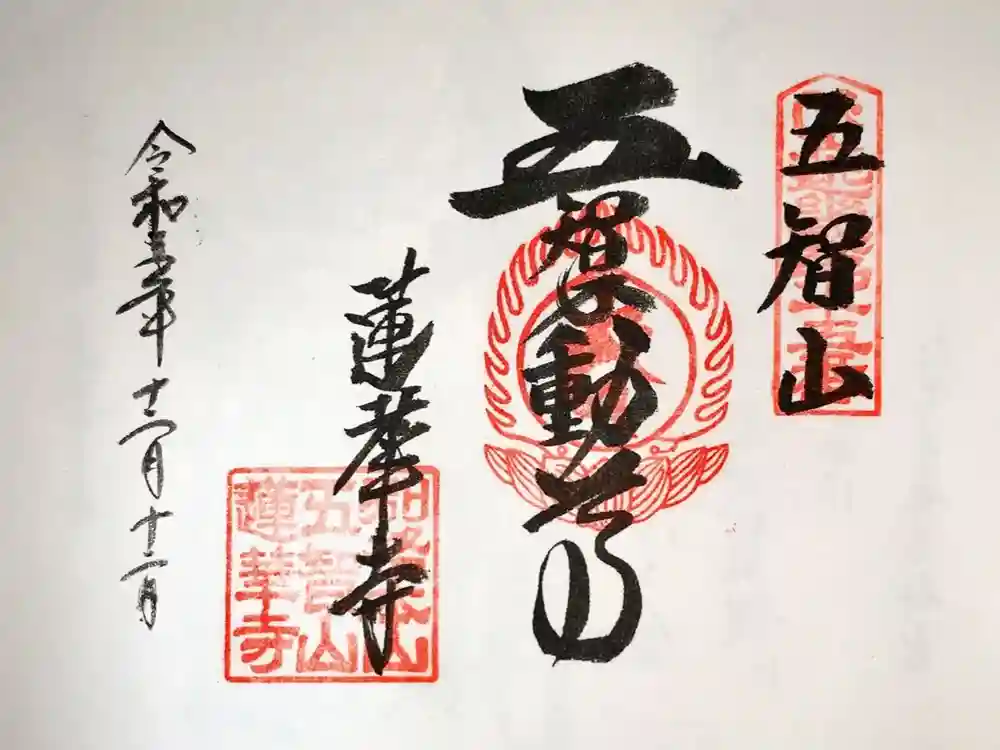 五智山
五智不動尊
蓮華寺
五智山
蓮華寺
令和三年十二月十二日